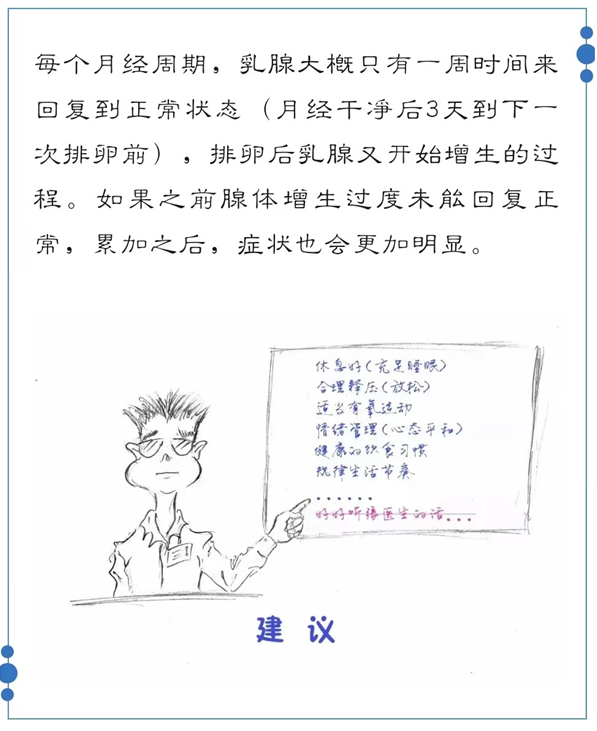 每个月经周期，乳腺大概只有一周时间来
回复到正常状态（月经干净后3天到下一
次排卵前），排卵后乳腺又开始增生的过
程。如果之前腺体增生过度未能回复正
常，累加之后，症状也会更加明显。
休息好(充足睡眠)
合理释压(放松)
适当有氧运动
情绪管理(心态平和)
健康的饮食习惯
规律生活节奏
......
好好听得医生的话...
建 议